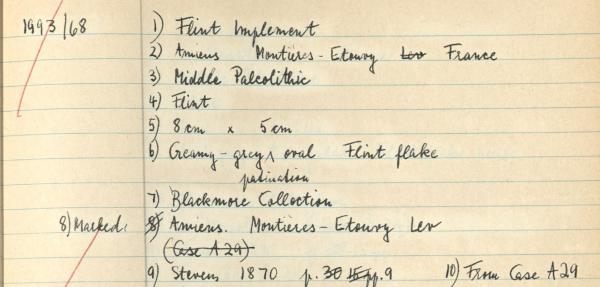 1993/68 1) Flint Implement
2) Amiens Montières - Etouvy Lev France
3) Middle Paleolithic
4) Flint
5) 8cm x 5cm
6) Creamy-grey ^ oval Flint flake
patination
7) Blackmore Collection
8) Marked: 8) Amiens. Montières - Etouvy Lev
(Case A 29)
9) Stevens 1870 p. 30 pp. 9 10) From Case A 29